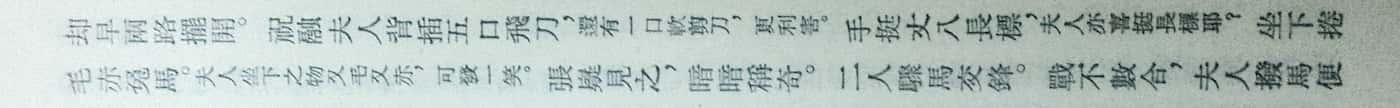 却早兩路擺開。祝融夫人背插五口飛刀,還有一口軟剪刀,更利害。手挺丈八長標,夫人亦喜挺長標耶?坐下捲
毛赤兔馬。夫人坐下之物又毛又赤,可發一笑。張嶷見之,暗暗稱奇。二人驟馬交鋒。戰不數合,夫人撥馬便